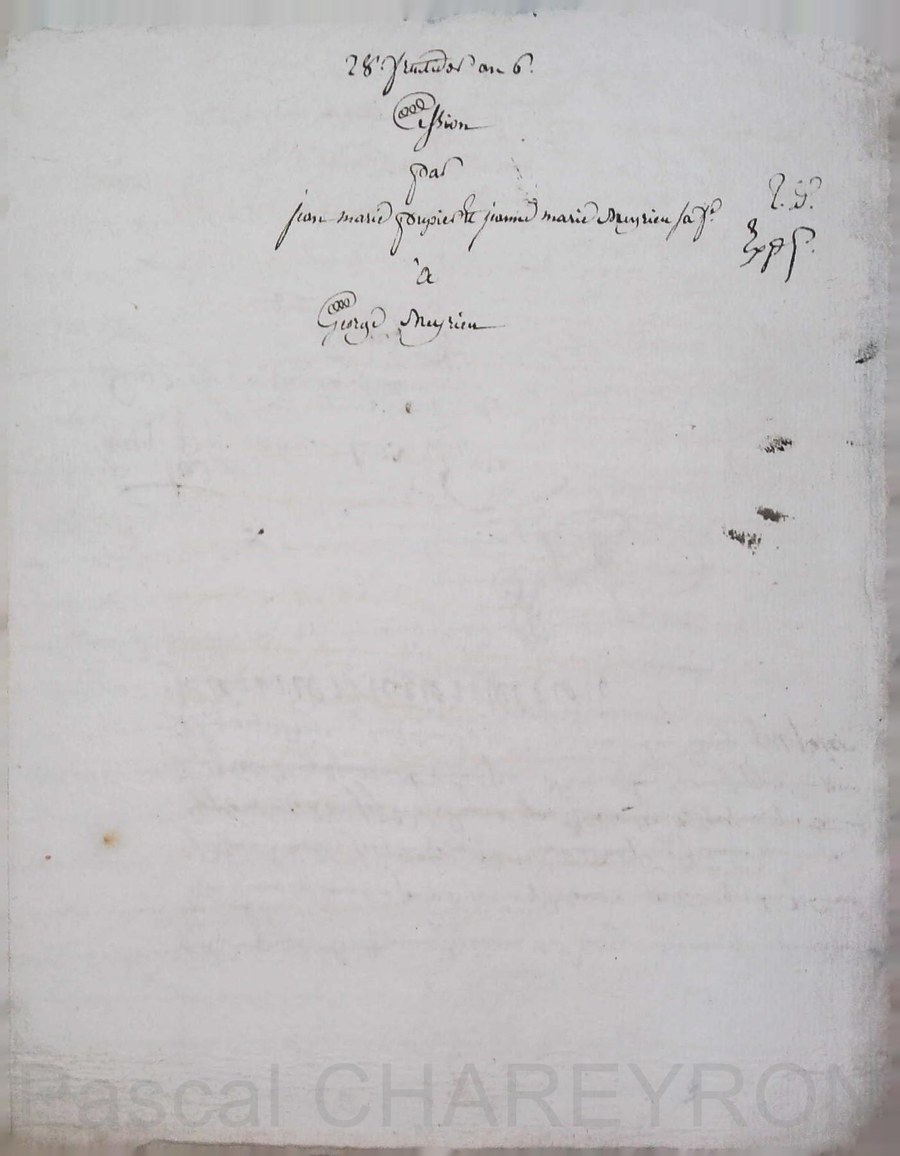 28 fructidor an 6.
Cession
par
jean marie poupier et jeanne marie Meyrieu sa fe
à
George Meyrieu
Exp
Pascal CHAREYRON